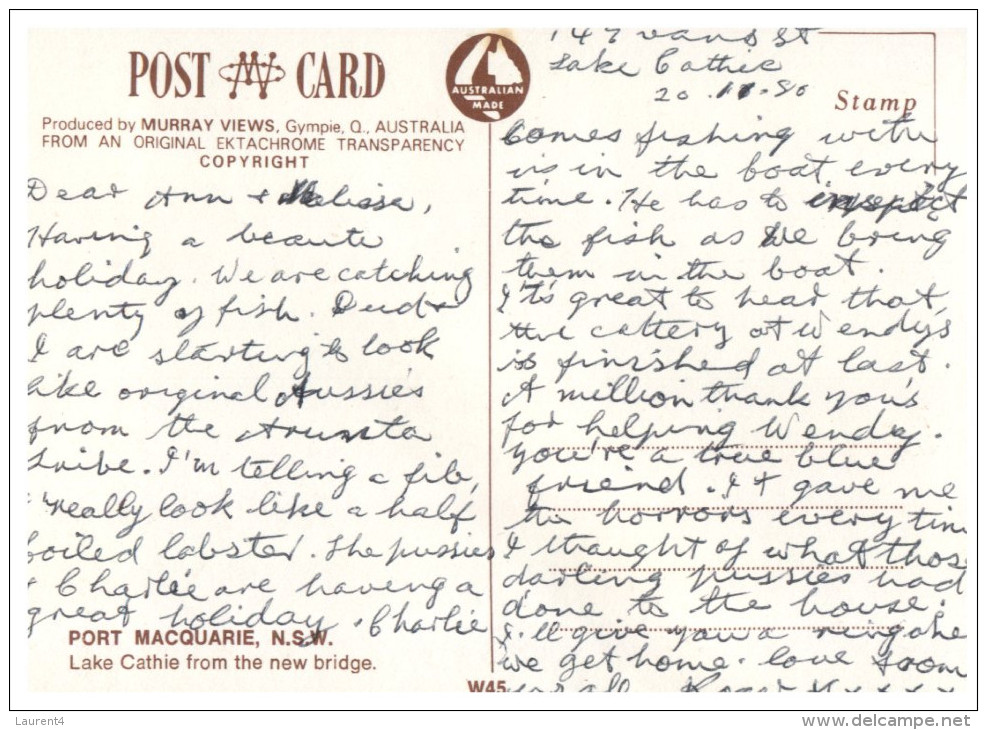 POST CARD
AUSTRALIAN
MADE
Produced by MURRAY VIEWS, Gympie, Q., AUSTRALIA
FROM AN ORIGINAL EKTACHROME TRANSPARENCY
COPYRIGHT
Stamp
Dear Ann & Melissa,
Having a beaute
holiday. We are catching
plenty of fish. Dud &
I are starting to look
like original Aussie's
from the Arunta
tribe. I'm telling a fib,
I really look like a half
boiled lobster. The pussies
& Charlie are having a
great holiday. Charlie
PORT MACQUARIE, N.S.W.
Lake Cathie from the new bridge.
W45
147 Evans St
Lake Cathie
20.11.80
Comes fishing with
us in the boat every
time. He has to inspect
the fish as We bring
them in the boat.
It's great to hear that,
the cattery at Wendy's
is finished at last.
A million thank you's
for helping Wendy.
You're a true blue
friend. It gave me
the horrors every tim
I thought of what thos
darling pussies had
done to the house.
I'll give you a ring when
we get home. love from
you all
Laurent4
www.delcampe.net